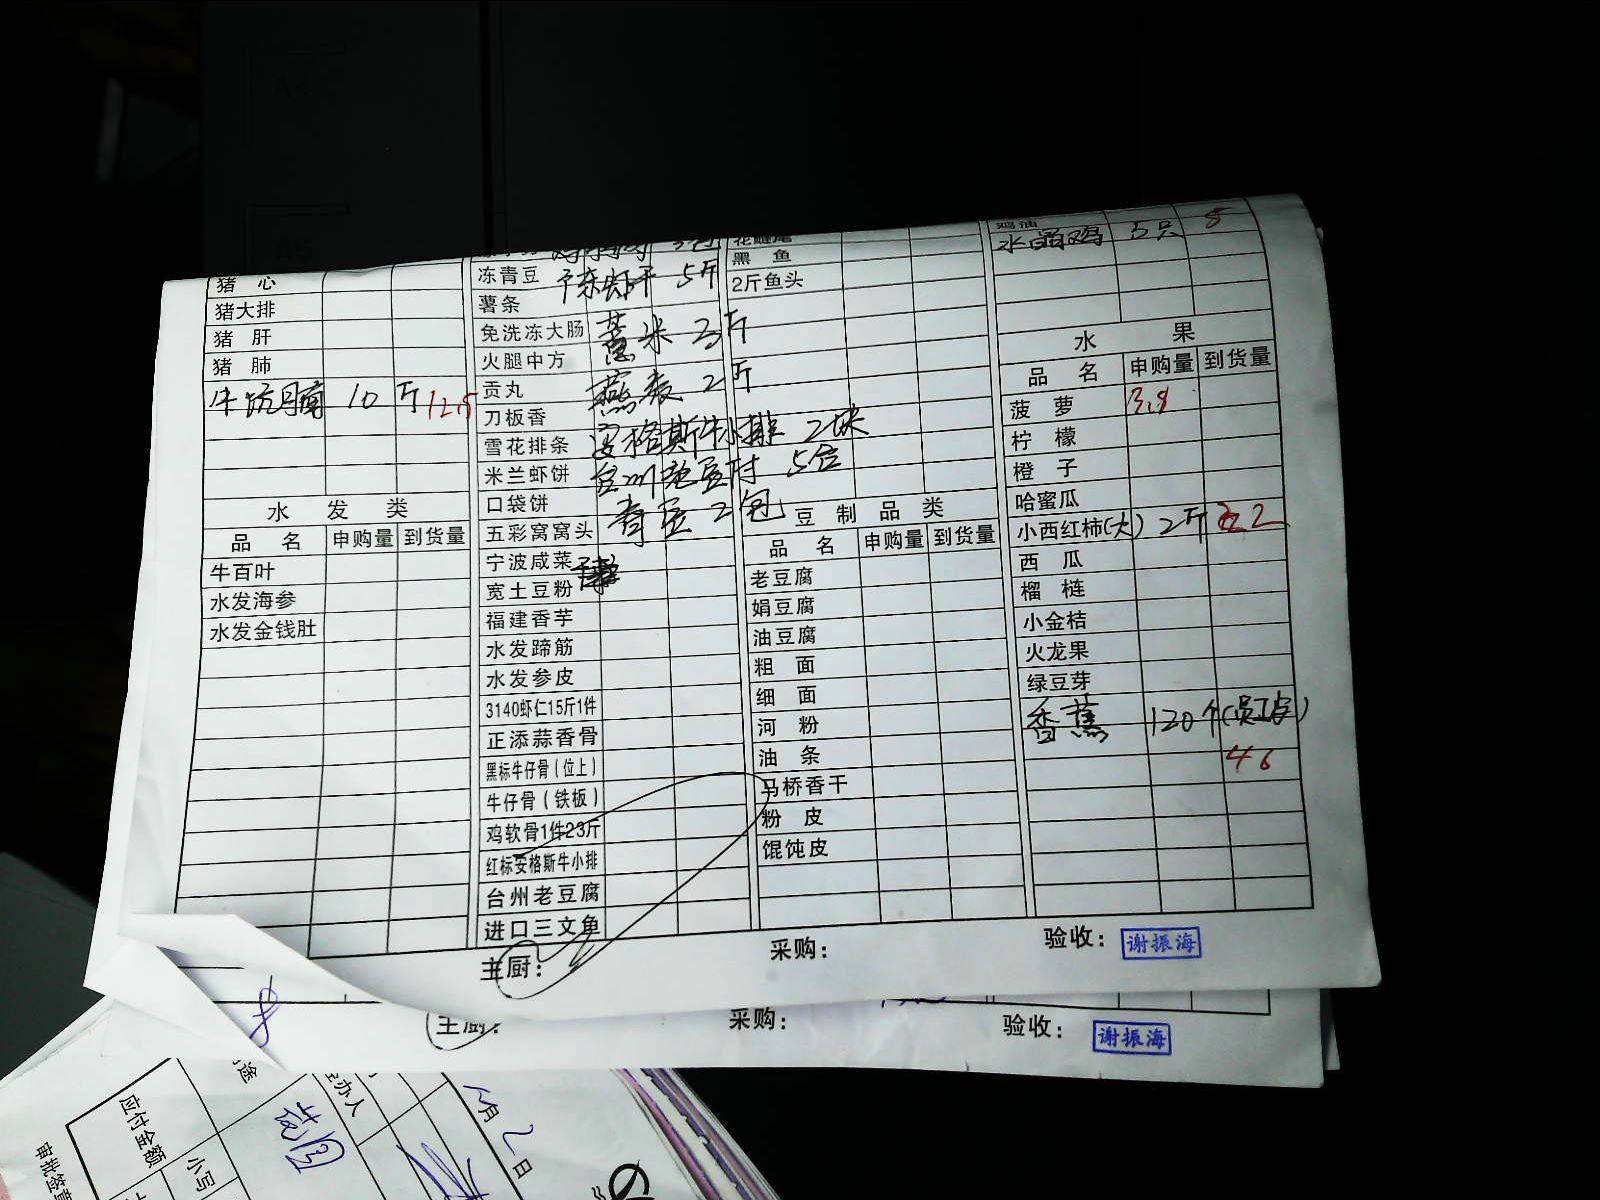 猪 心
猪大排
猪 肝
猪 肺
牛坑腩 10斤 12.5
水 发 类
品 名 申购量 到货量
牛百叶
水发海参
水发金钱肚
冻青豆
虾干 5斤
薯条
免洗冻大肠
薏米 2斤
火腿中方
贡丸
燕麦 2斤
刀板香
雪花排条
安格斯牛小排 2块
米兰虾饼
台州老豆腐 5盒
口袋饼
青豆 2包
五彩窝窝头
宁波咸菜
宽土豆粉
福建香芋
水发蹄筋
水发参皮
3140虾仁15斤1件
正添蒜香骨
黑标牛仔骨(位上)
牛仔骨(铁板)
鸡软骨1件23斤
红标安格斯牛小排
台州老豆腐
进口三文鱼
花鲢尾
黑 鱼
2斤鱼头
豆 制 品 类
品 名 申购量 到货量
老豆腐
娟豆腐
油豆腐
粗 面
细 面
河 粉
油 条
马桥香干
粉 皮
馄饨皮
鸡油
水晶鸡 3只 5
水 果
品 名 申购量 到货量
菠 萝 3.9
柠 檬
橙 子
哈蜜瓜
小西红柿(大) 2斤 2.2
西 瓜
榴 梿
小金桔
火龙果
绿豆芽
香蕉 120个(员工)
46
主厨: 采购: 验收: 谢振海
主厨: 采购: 验收: 谢振海
途
应付金额
小写
月2日